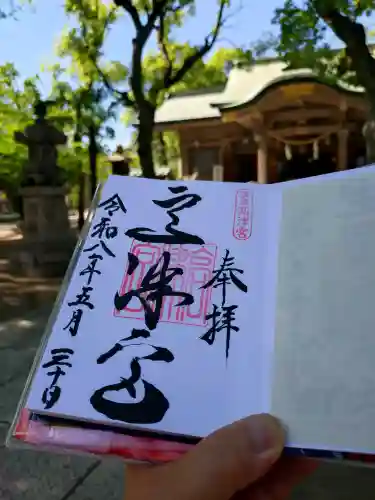 奉拝
高津宮
令和八年五月三十日